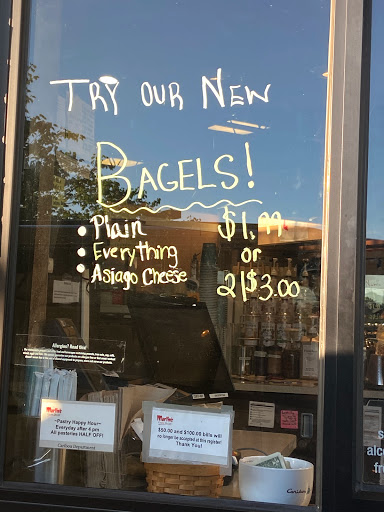 TRY OUR NEW
BAGELS!
• Plain $1.99
• Everything or
• Asiago Cheese 2/$3.00
Allergies? Read this!
Martin's
~Pastry Happy Hour~
Everyday after 4 pm
All pastries HALF OFF!
Martin's
$50.00 and $100.00 bills will
no longer be accepted at this register!
Thank You!